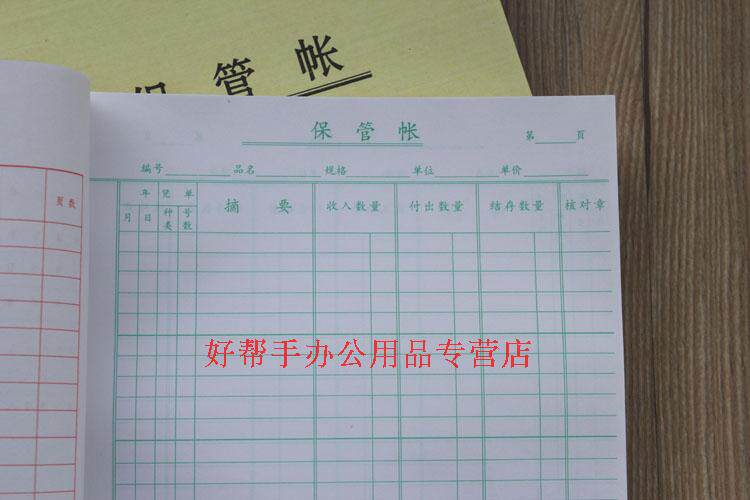 保管帐
保管帐
第 页
编号 品名 规格 单位 单价
页数
年 凭单 摘要 收入数量 付出数量 结存数量 核对章
月 日 种类 号数
好帮手办公用品专营店